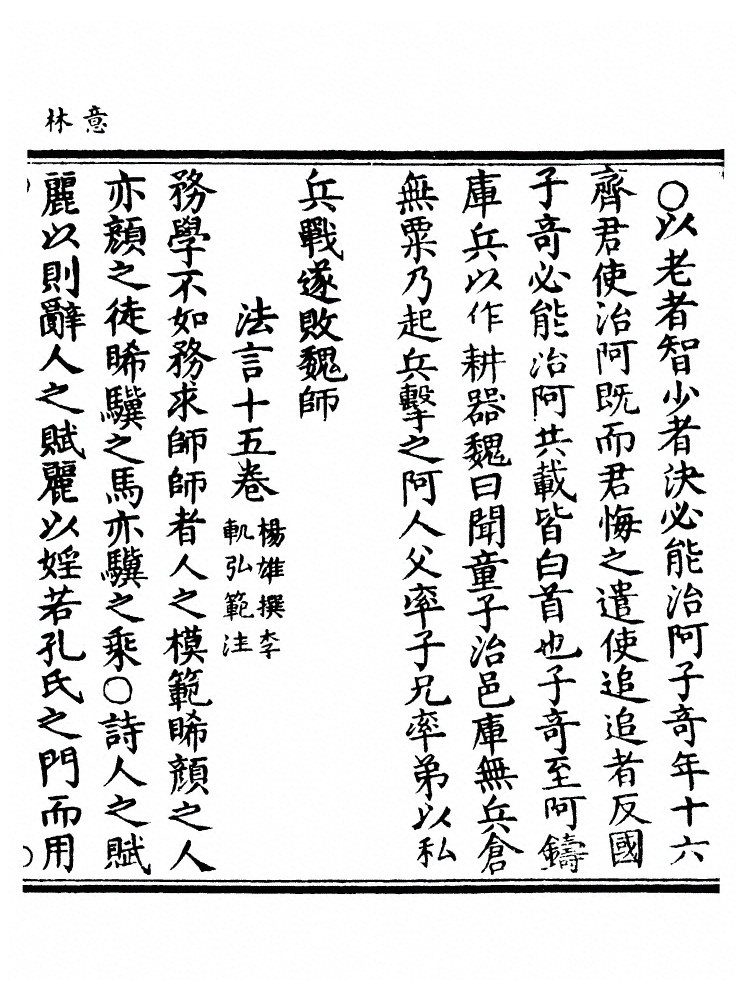 意林
○以老者智少者決必能治阿子奇年十六
齊君使治阿既而君悔之遣使追追者反國
子奇必能治阿共載皆白首也子奇至阿鑄
庫兵以作耕器魏曰聞童子治邑庫無兵倉
無粟乃起兵擊之阿人父率子兄率弟以私
兵戰遂敗魏師
法言十五卷
楊雄撰李
軌弘範注
務學不如務求師師者人之模範睎顏之人
亦顏之徒睎驥之馬亦驥之乘○詩人之賦
麗以則辭人之賦麗以婬若孔氏之門而用